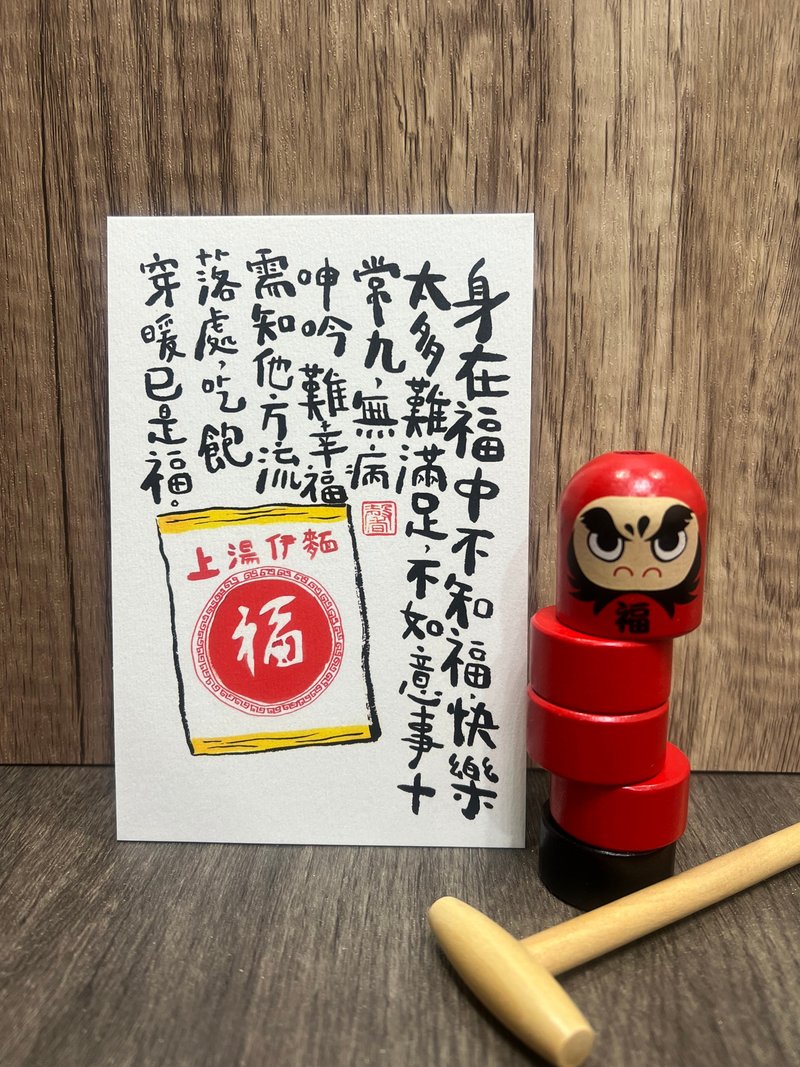 身在福中不知福,快樂
太多難滿足,不如意事十
常九,無病
呻吟 難幸福
需知他方流
落處,吃飽
穿暖已是福。
上湯伊麵
福
福